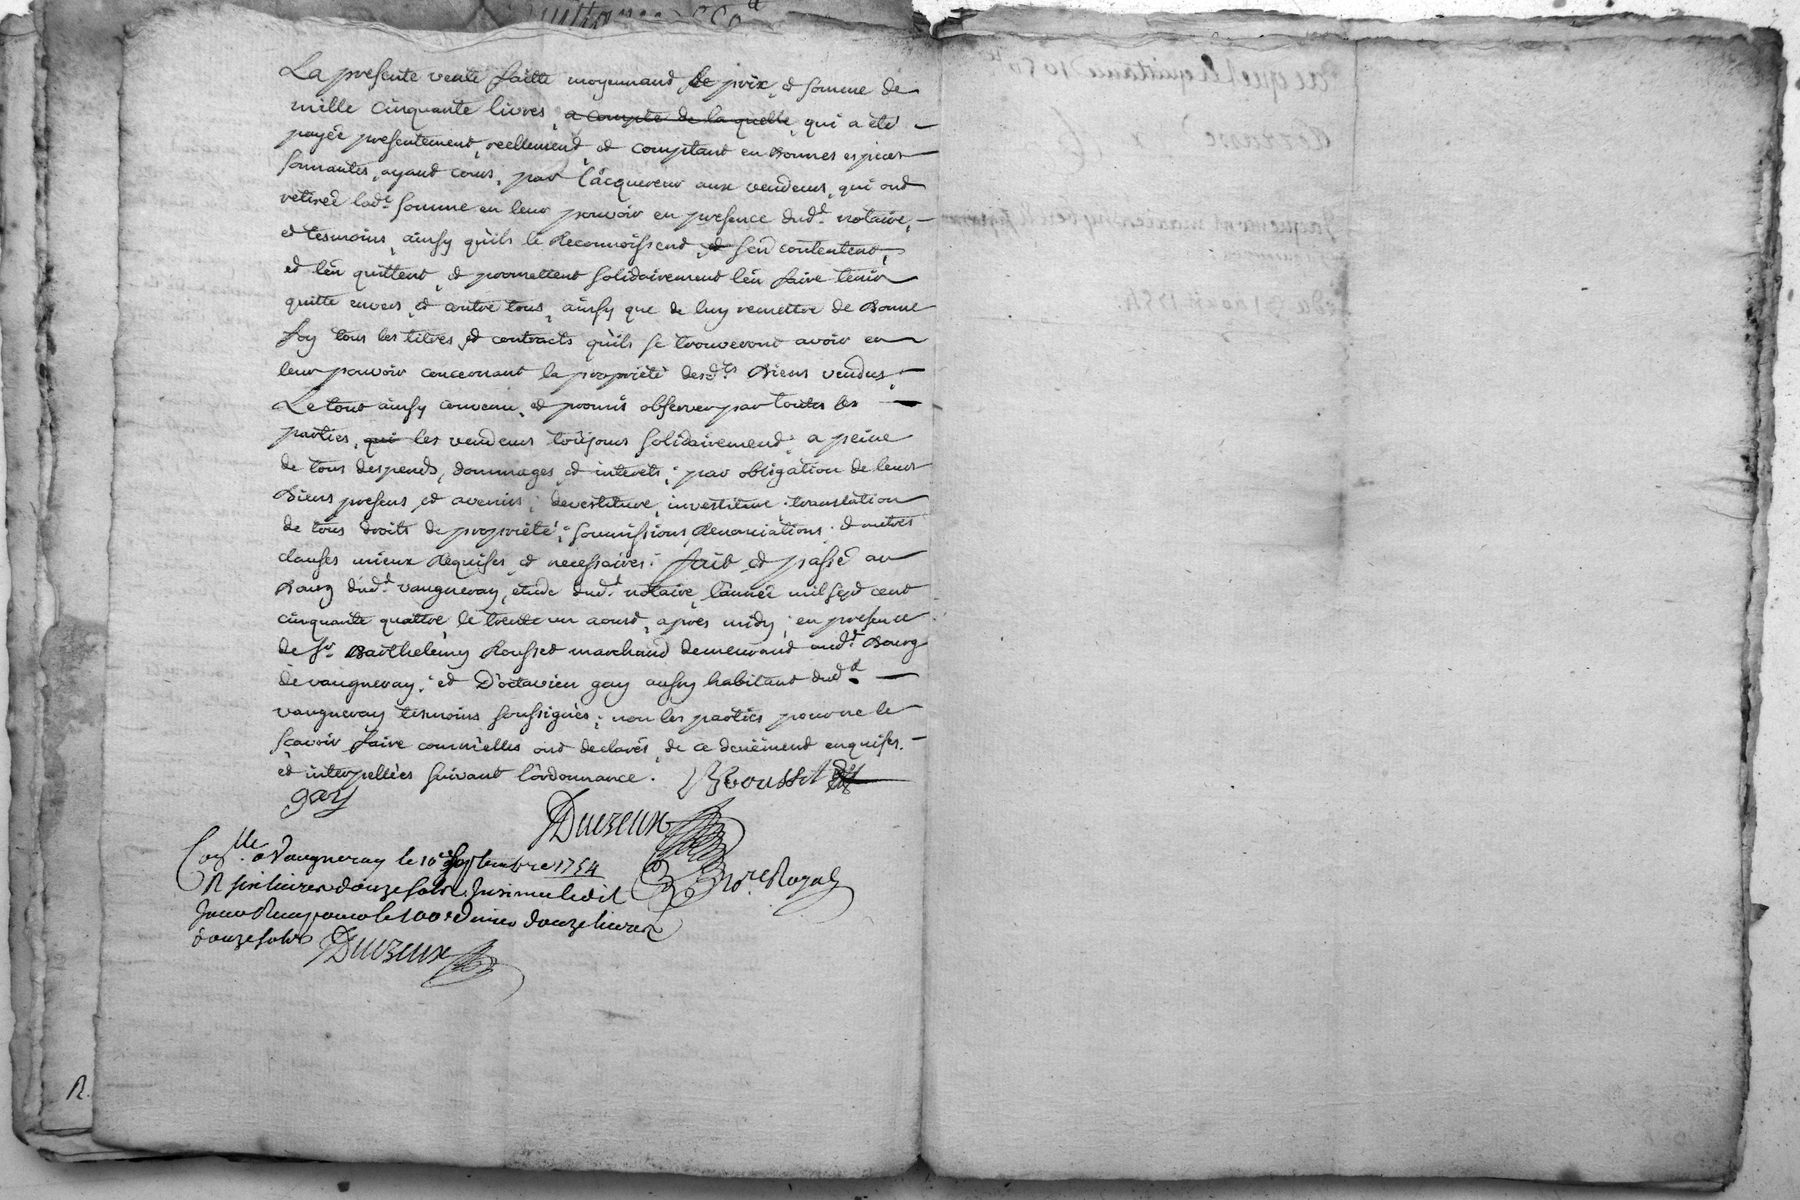 La presente vente faitte moyennand le prix, et somme de
mille cinquante livres, a compte de la quelle, qui a été
payée presentement, reellement, et comptant en Bonnes especes
sonnantes, ayand cours, par l'acquereur aux vendeurs, qui ond
retirée lade. somme en leur pouvoir en presence dudt. notaire,
et tesmoins, ainsy qu'ils le Reconnoissend, et s'en contentent,
et l'en quittent, et promettent solidairement l'en faire tenir
quitte envers, et contre tous, ainsy que de luy remettre de Bonne
foy tous les titres, et contracts qu'ils se trouveront avoir en
leur pouvoir concernant la propriété desdts Biens vendus,
Le tout ainsy convenu, et promis observer par toutes les
parties, qui les vendeurs toûjours solidairement; a peine
de tous despends, dommages, et interets; par obligation de leurs
Biens presens, et avenirs; devestiture, investiture, translation
de tous droits de propriété; soumissions, Renonciations, et autres
clauses mieux Requises, et necessaires. fait et passé au
Bourg dudt. vaugneray, etude dudt. notaire, l'année mil sept cent
cinquante quattre, le trente un aoust, après midy; en presence
de Sr. Barthelemy Rousset marchand demeurand audt. Bourg
de vaugneray; et D'octavien gay aussy habitant dudt.
vaugneray tesmoins soussignés; non les parties pour ne le
sçavoir faire comm'elles ond declarés, de ce deuëment enquises,
et interpellées suivant l'ordonnance. BRousset
gay
Duvzeux
Conlle. a Vaugneray le 10e Septembre 1754
R six livres douze sols Insinué ledit
Jour Reçu pour le 100e Denier douze livres
douze sols Duvzeux
nore Royal
R.